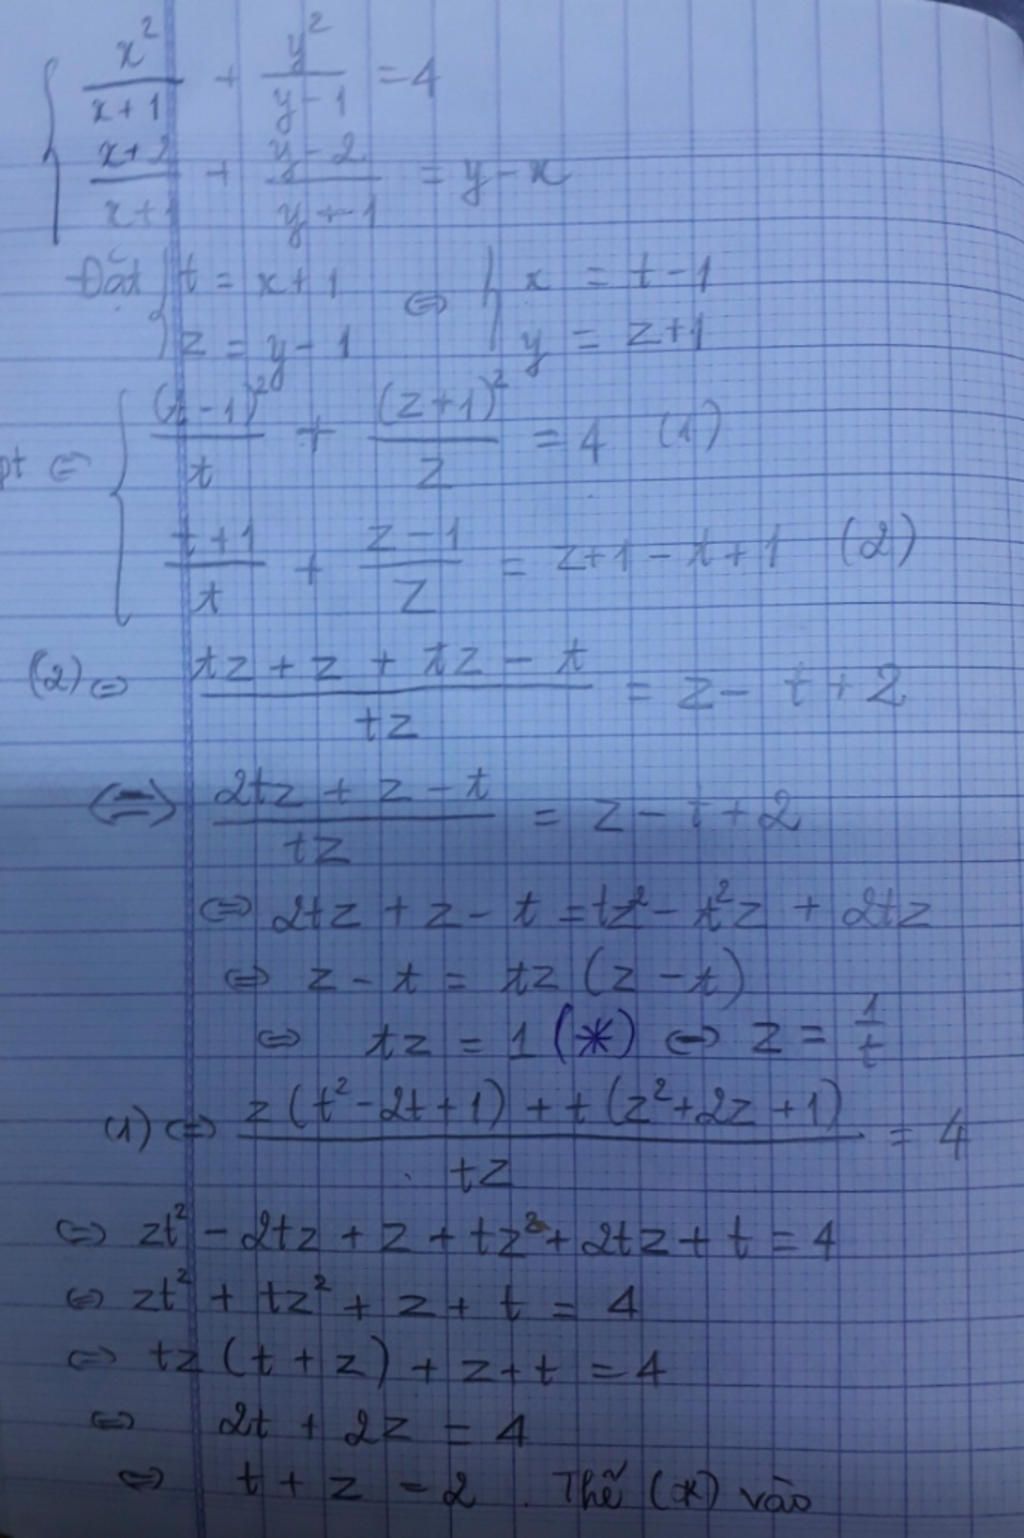 { x²/(x+1) + y²/(y-1) = 4
(x+2)/(x+1) + (y-2)/(y-1) = y-x
Đặt { t = x+1 ⇔ { x = t-1
z = y-1 y = z+1
pt ⇔ { (t-1)²/t + (z+1)²/z = 4 (1)
(t+1)/t + (z-1)/z = z+1-t+1 (2)
(2) ⇔ (tz + z + tz - t)/tz = z - t + 2
⇔ (2tz + z - t)/tz = z - t + 2
⇔ 2tz + z - t = tz² - t²z + 2tz
⇔ z - t = tz (z - t)
⇔ tz = 1 (*) ⇔ z = 1/t
(1) ⇔ (z(t²-2t+1) + t(z²+2z+1))/tz = 4
⇔ zt² - 2tz + z + tz² + 2tz + t = 4
⇔ zt² + tz² + z + t = 4
⇔ tz (t + z) + z + t = 4
⇔ 2t + 2z = 4
⇔ t + z = 2 . Thế (*) vào